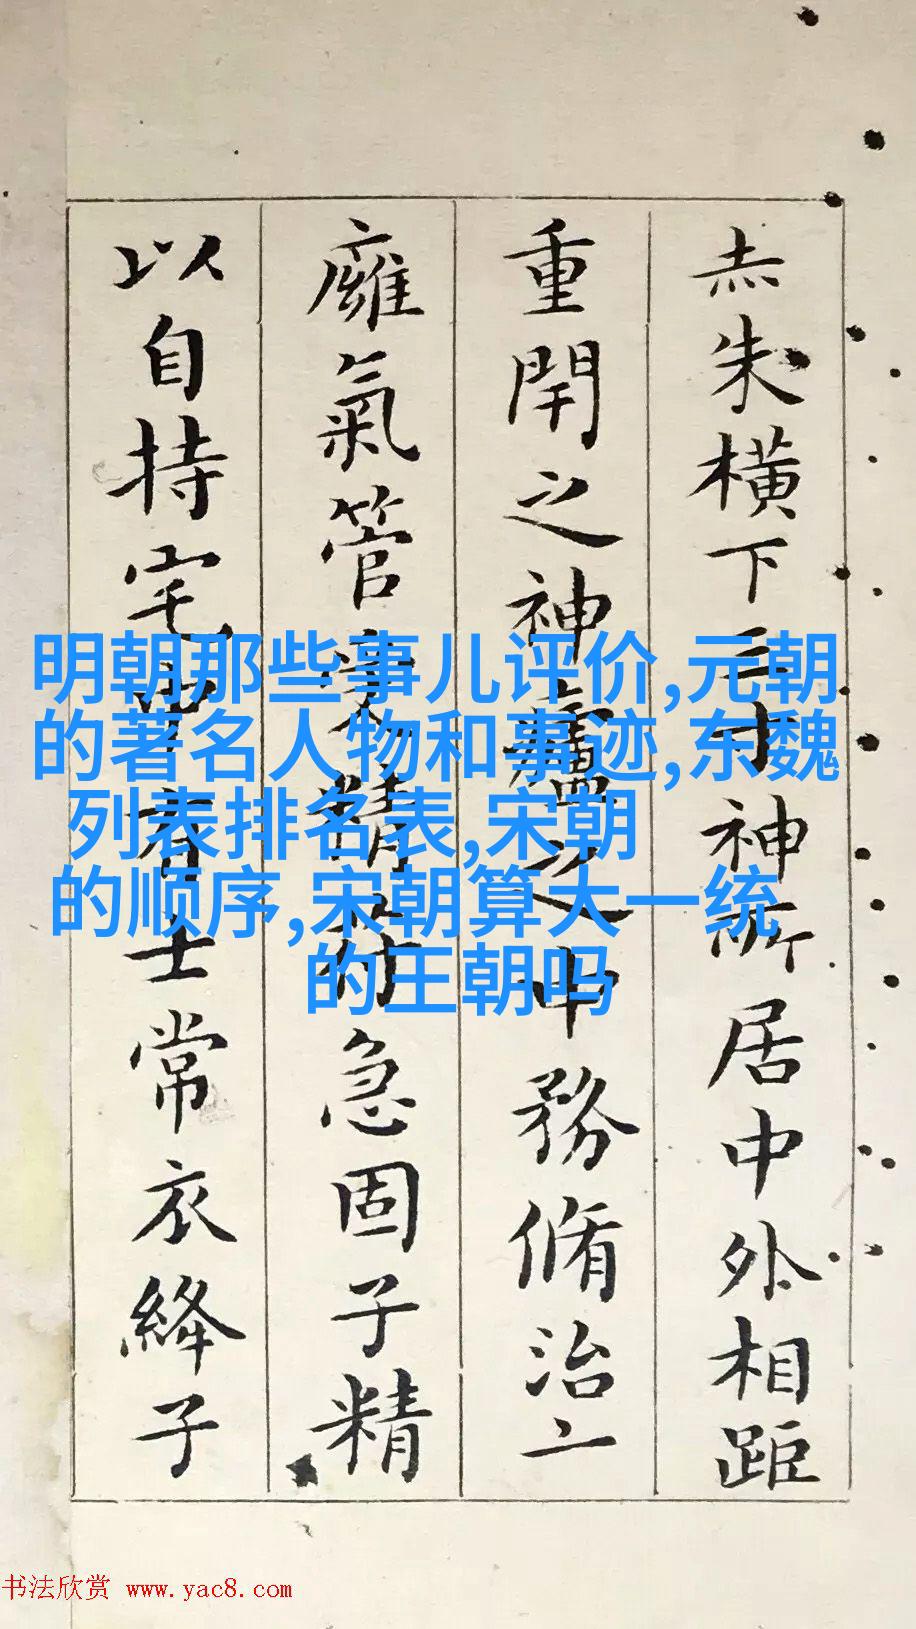 赤朱橫下三寸神所居中外相距
重閇之神廬之中務脩治
廱氣管受精符急固子精
以自持宅中有士常衣絳子
明朝那些事儿评价,元朝
的著名人物和事迹,东魏
列表排名表,宋朝
的顺序,宋朝算大一统
的王朝吗
书法欣赏 www.yac8.com